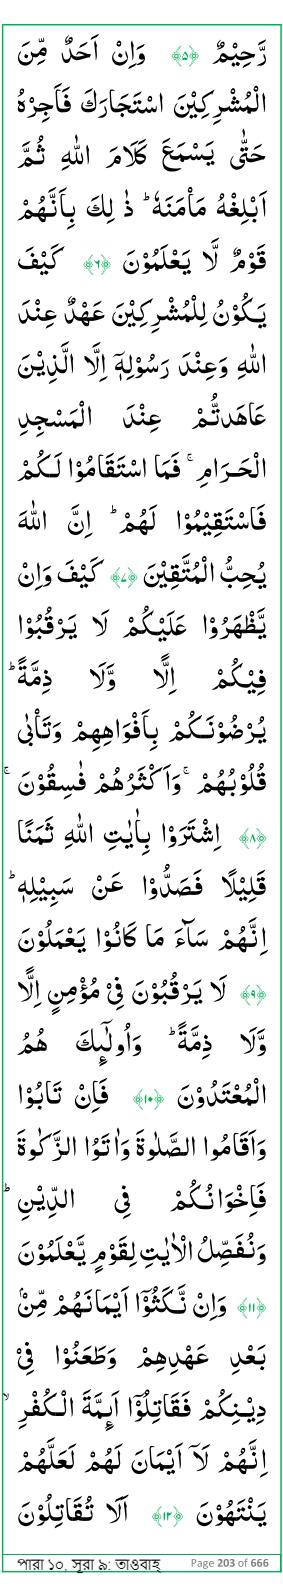 رَّحِيْمٌ ﴿۵﴾ وَاِنْ اَحَدٌ مِّنَ
الْمُشْرِكِيْنَ اسْتَجَارَكَ فَاَجِرْهُ
حَتّٰى يَسْمَعَ كَلَامَ اللهِ ثُمَّ
اَبْلِغْهُ مَاْمَنَهٗ ؕ ذٰ لِكَ بِاَنَّهُمْ
قَوْمٌ لَّا يَعْلَمُوْنَ ﴿۶﴾ كَيْفَ
يَكُوْنُ لِلْمُشْرِكِيْنَ عَهْدٌ عِنْدَ
اللهِ وَعِنْدَ رَسُوْلِهٖۤ اِلَّا الَّذِيْنَ
عَاهَدتُّمْ عِنْدَ الْمَسْجِدِ
الْحَـرَامِ ۚ فَمَا اسْتَقَامُوْا لَـكُمْ
فَاسْتَقِيْمُوْا لَهُمْ ؕ اِنَّ اللهَ
يُحِبُّ الْمُتَّقِيْنَ ﴿۷﴾ كَيْفَ وَاِنْ
يَّظْهَرُوْا عَلَيْكُمْ لَا يَرْقُبُوْا
فِيْكُمْ اِلًّا وَّلَا ذِمَّةً ؕ
يُرْضُوْنَـكُمْ بِاَفْوَاهِهِمْ وَتَاْبٰى
قُلُوْبُهُمْ ۚ وَاَكْثَرُهُمْ فٰسِقُوْنَ ۚ
﴿۸﴾ اِشْتَرَوْا بِاٰيٰتِ اللهِ ثَمَنًا
قَلِيْلًا فَصَدُّوْا عَنْ سَبِيْلِهٖ ؕ
اِنَّهُمْ سَآءَ مَا كَانُوْا يَعْمَلُوْنَ
﴿۹﴾ لَا يَرْقُبُوْنَ فِىْ مُؤْمِنٍ اِلًّا
وَّلَا ذِمَّةً ؕ وَاُولٰۤٮِٕكَ هُمُ
الْمُعْتَدُوْنَ ﴿۱۰﴾ فَاِنْ تَابُوْا
وَاَقَامُوا الصَّلٰوةَ وَاٰتَوُا الزَّكٰوةَ
فَاِخْوَانُكُمْ فِى الدِّيْنِ ؕ
وَنُفَصِّلُ الْاٰيٰتِ لِقَوْمٍ يَّعْلَمُوْنَ
﴿۱۱﴾ وَاِنْ نَّكَثُوْۤا اَيْمَانَهُمْ مِّنْۢ
بَعْدِ عَهْدِهِمْ وَطَعَنُوْا فِىْ
دِيْـنِكُمْ فَقَاتِلُوْۤا اَٮِٕمَّةَ الْـكُفْرِ ۙ
اِنَّهُمْ لَاۤ اَيْمَانَ لَهُمْ لَعَلَّهُمْ
يَنْتَهُوْنَ ﴿۱۲﴾ اَلَا تُقَاتِلُوْنَ
পারা ১০, সূরা ৯: তাওবাহ্ Page 203 of 666